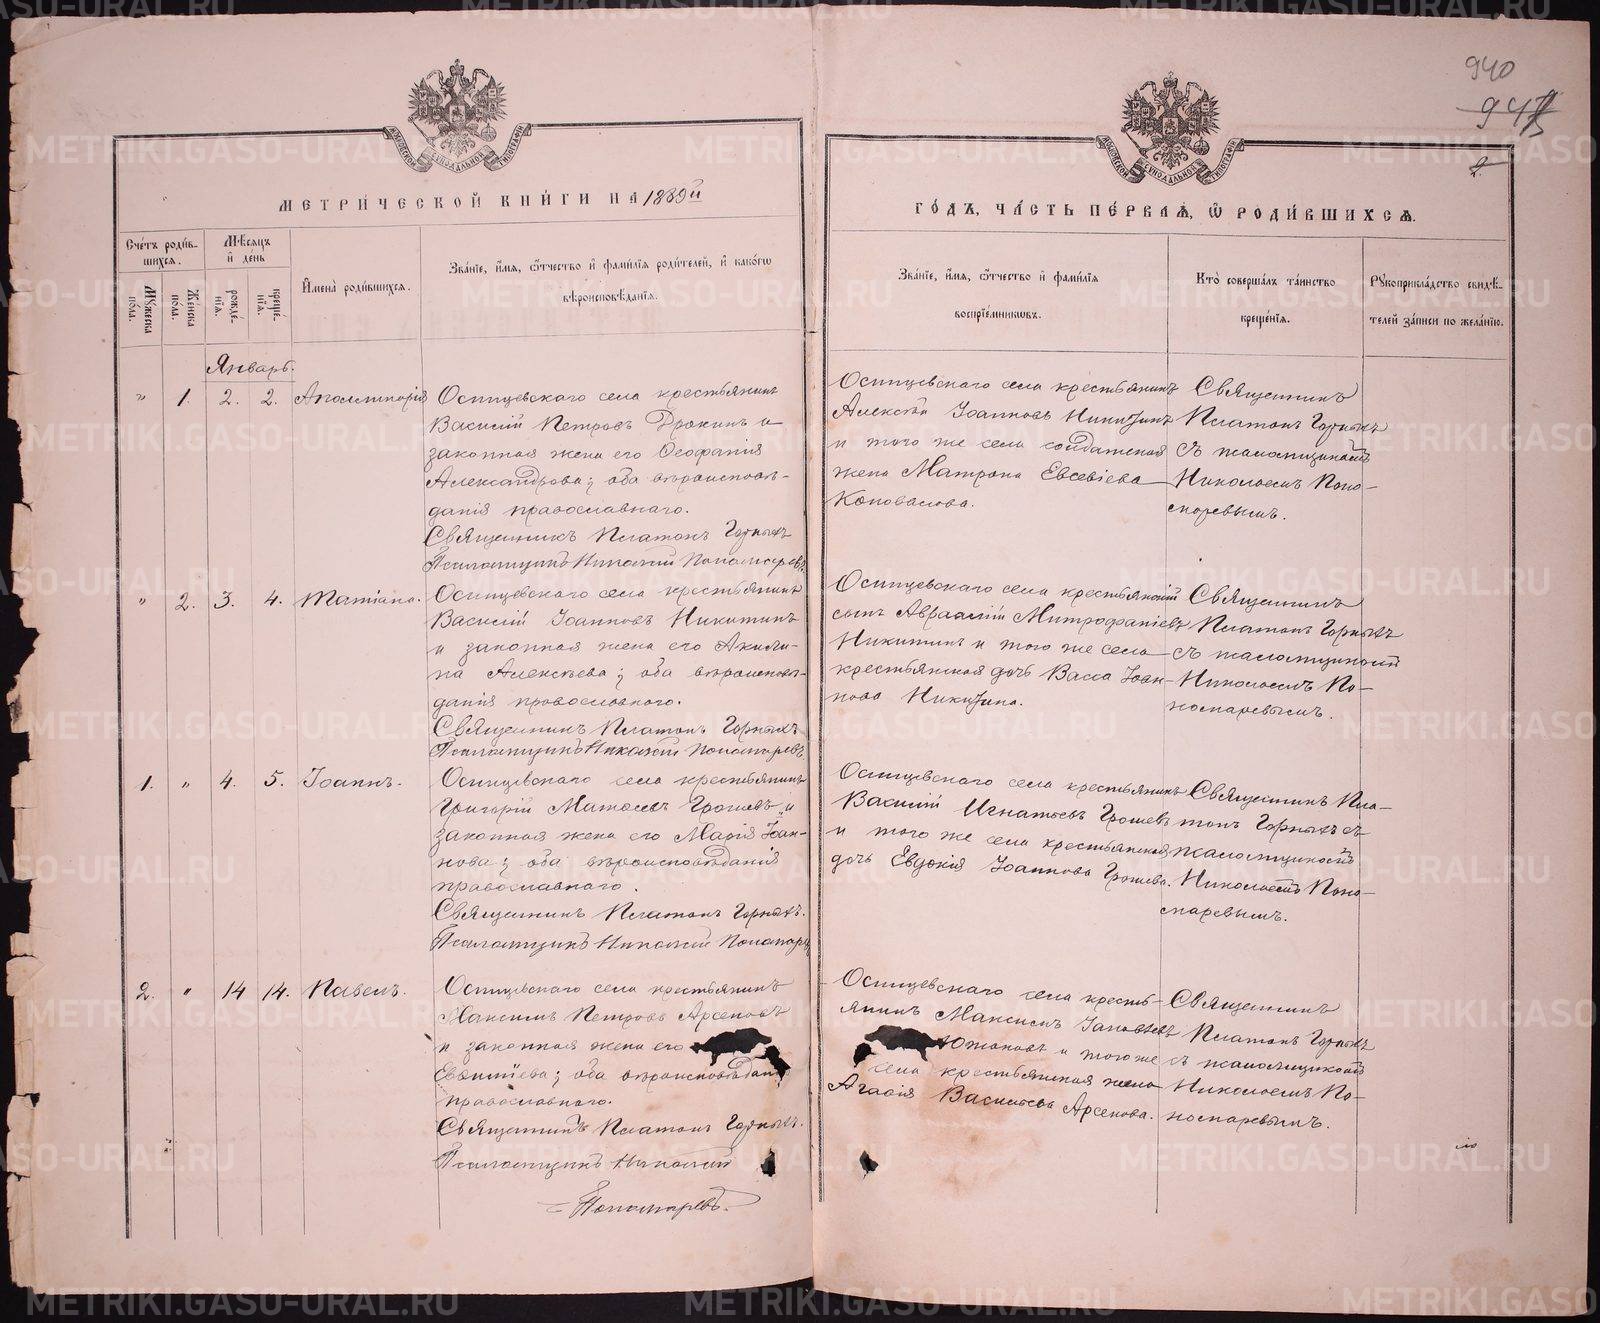 940
947
2.
МЕТРИ́ЧЕСКОЙ КНИ́ГИ НА 1889й
ГО́ДЪ, ЧА́СТЬ ПЕ́РВАѦ, Ѿ РОДИ́ВШИХСѦ.
Сче́тъ роди́в-
шихсѧ.
Мѣсѧцъ
и де́нь
И҆мена̀ роди́вшихсѧ.
Зва́нїе, и҆́мѧ, ѿтчество и҆ фами́лїѧ роди́телей, и҆ како́гѡ
вѣроисповѣ́данїѧ.
Му́жеска
по́ла.
Же́нска
пола.
рожде́-
нїѧ.
креще́-
нїѧ.
Зва́нїе, и҆́мѧ, ѿтчество и҆ фами́лїѧ
воспрїе́мникѡвъ.
Кто̀ соверша́лъ та́инство
креще́нїѧ.
Рꙋкоприкла́дство свидѣ́-
телей за́писи по жела́нїю.
Январь.
" 1. 2. 2. Аполлинарія
Осинцевскаго села крестьянинъ
Василій Петровъ Дрокинъ и
законная жена его Ѳеофанія
Александрова; оба вѣроисповѣ-
данія православнаго.
Священникъ Платонъ Горныхъ
Псаломщикъ Николай Пономаревъ.
Осинцевскаго села крестьянинъ
Алексѣй Іоанновъ Никитинъ
и того же села солдатская
жена Матрона Евсевіева
Коновалова.
Священникъ
Платонъ Горныхъ
съ псаломщикомъ
Николаемъ Поно-
маревымъ.
" 2. 3. 4. Татіана.
Осинцевскаго села крестьянинъ
Василій Іоанновъ Никитинъ
и законная жена его Акили-
на Алексѣева; оба вѣроисповѣ-
данія православнаго.
Священникъ Платонъ Горныхъ
Псаломщикъ Николай Пономаревъ.
Осинцевскаго села крестьянскій
сынъ Авраамій Митрофаніевъ
Никитинъ и того же села
крестьянская дочь Васса Іоан-
нова Никитина.
Священникъ
Платонъ Горныхъ
съ псаломщикомъ
Николаемъ По-
номаревымъ.
1. " 4. 5. Іоаннъ.
Осинцевскаго села крестьянинъ
Григорій Матѳеевъ Грошевъ и
законная жена его Марія Іоан-
нова; оба вѣроисповѣданія
православнаго.
Священникъ Платонъ Горныхъ.
Псаломщикъ Николай Пономаревъ
Осинцевскаго села крестьянинъ
Василій Игнатьевъ Грошевъ
и того же села крестьянская
дочь Евдокія Іоаннова Грошева.
Священникъ Пла-
тонъ Горныхъ съ
псаломщикомъ
Николаемъ Поно-
маревымъ.
2. " 14 14. Павелъ.
Осинцевскаго села крестьянинъ
Максимъ Петровъ Арсеновъ
и законная жена его
оба вѣроисповѣданія
православнаго.
Священникъ Платонъ Горныхъ.
Псаломщикъ Николай
Пономаревъ.
Осинцевскаго села кресть-
янинъ Максимъ
Южаковъ и того же
села крестьянская жена
Агафія Васильева Арсенова.
Священникъ
Платонъ Горныхъ
съ псаломщикомъ
Николаемъ По-
номаревымъ.
METRIKI.GASO-URAL.RU